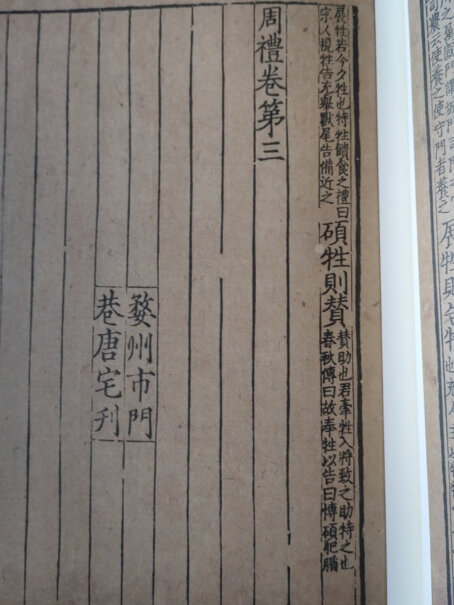 司農云使養之使守門者養之
展牲則告牷
展牲若今夕牲也特牲饋食之禮曰
宗人視牲告充舉獸尾告備近之
碩牲則贊
贊助也君牽牲入將致之助持之也
春秋傳曰故奉牲以告曰博碩肥腯
周禮卷第三
婺州市門
巷唐宅刊